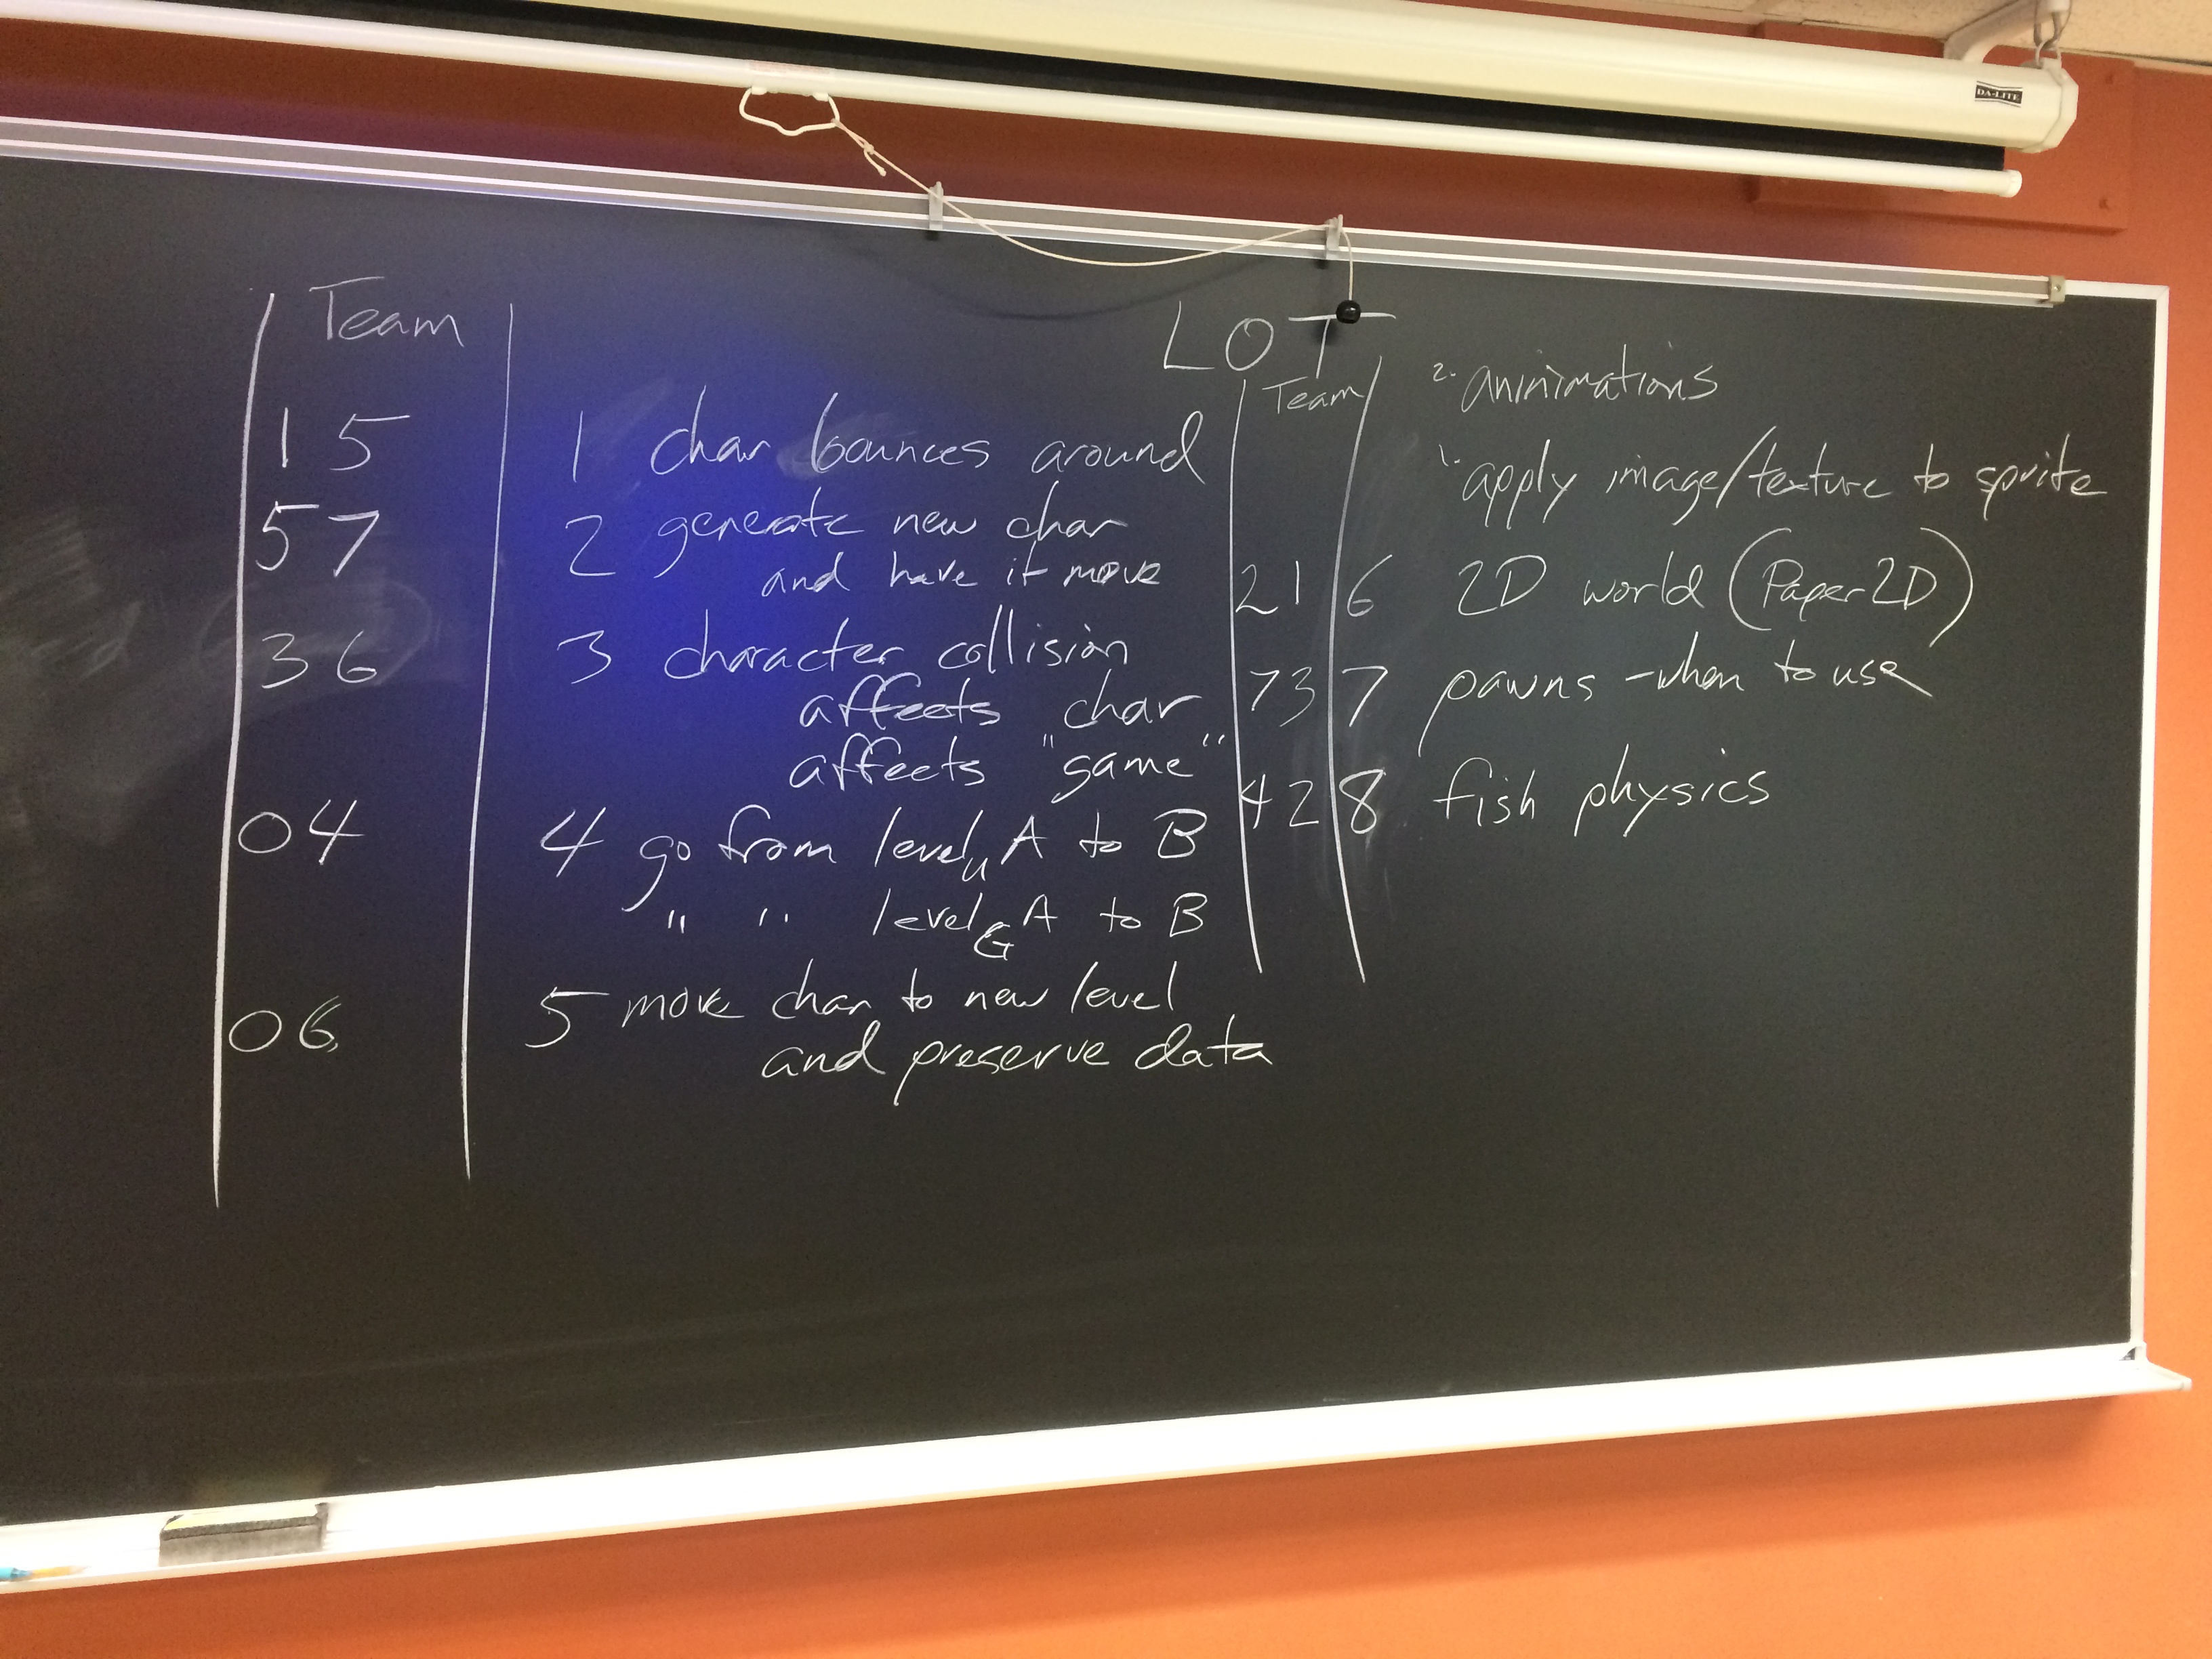 DA-LITE
Team
15 1 char bounces around
57 2 generate new char
and have it move
36 3 character collision
affects char
affects "game"
04 4 go from level U A to B
" " level G A to B
06 5 move char to new level
and preserve data
LOT
Team
2. aninimations
1. apply image/texture to sprite
21 6 2D world (Paper2D)
73 7 pawns - when to use
42 8 fish physics